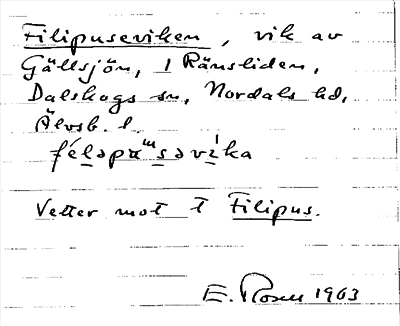 Filipuseviken, vik av
Gällsjön, i Ränsliden,
Dalskogs sn, Nordals hd,
Älvsb. l.
féləpusəvìka
Vetter mot T Filipus.
E. Rosen 1963